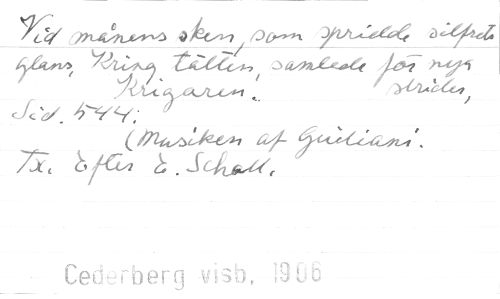 Vid månens sken, som spridde silfrets
glans, Kring tälten, samlade för nya
Krigaren. strider,
Sid. 544.
(Musiken af Giuliani.
Tx. Efter E. Schall.
Cederberg visb, 1906